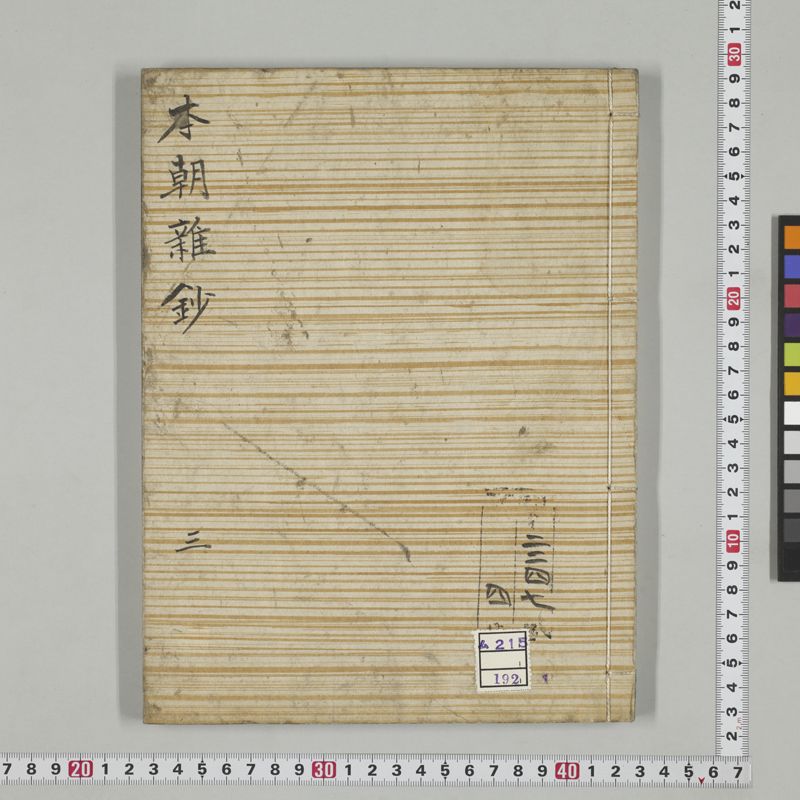 本朝雜鈔
三
四
215
192
2 1 30 9 8 7 6 5 4 3 2 1 20 9 8 7 6 5 4 3 2 1 10 9 8 7 6 5 4 3 2
7 8 9 20 1 2 3 4 5 6 7 8 9 30 1 2 3 4 5 6 7 8 9 40 1 2 3 4 5 6 7